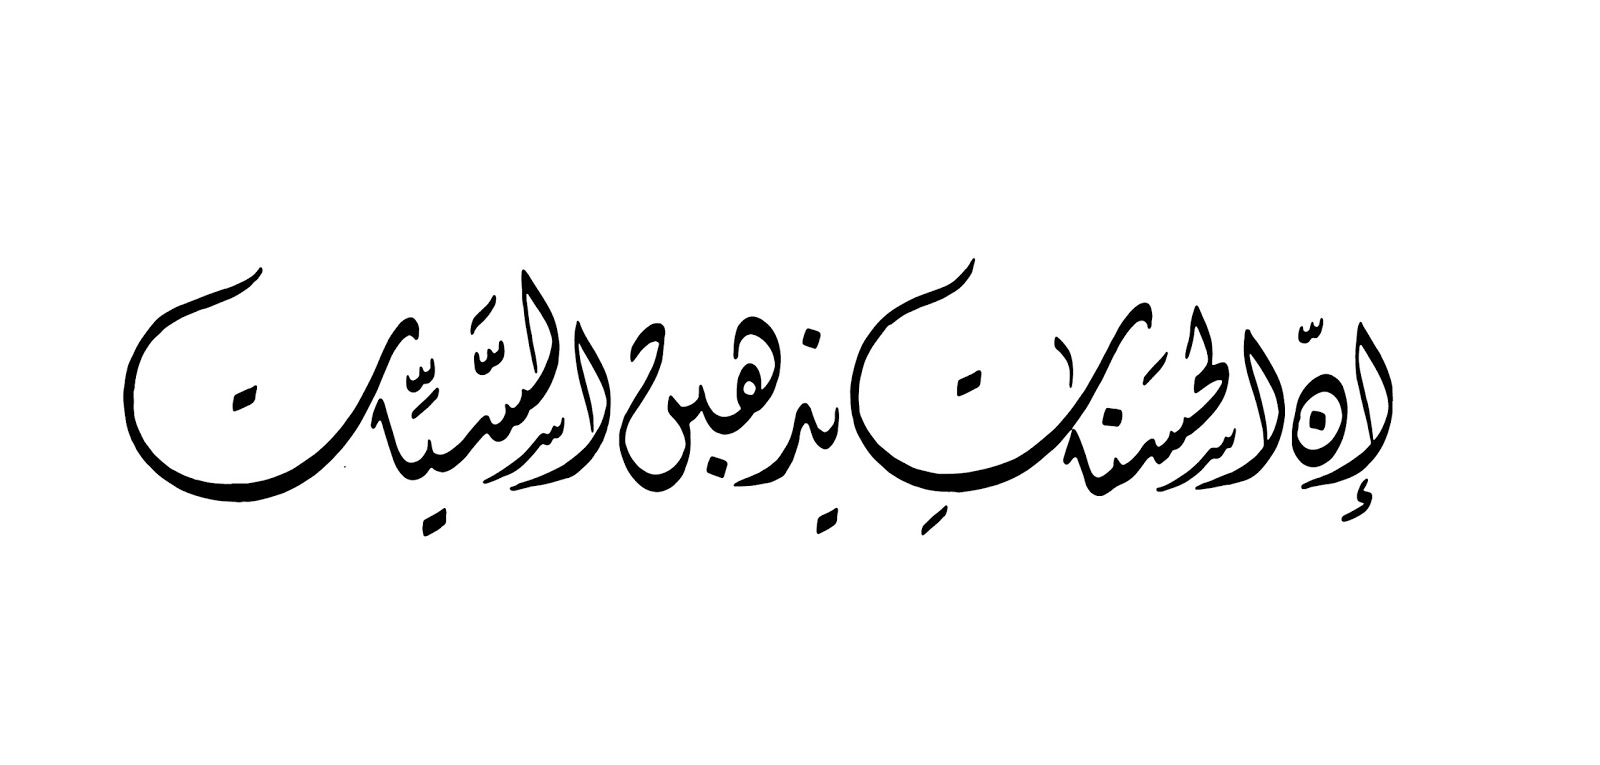 إنّ الحسنات يذهبن السَّيِّئات